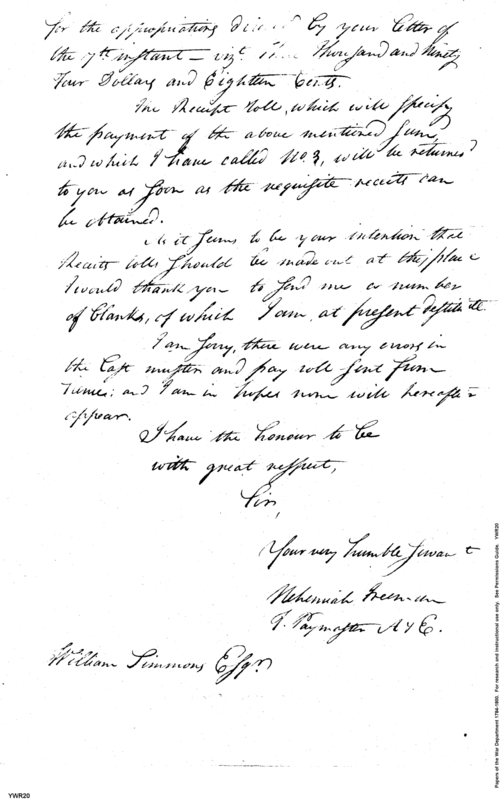 for the appropriations by your letter of
the 7th instant – vizt. Thousand and Ninety
Four Dollars and Eighteen Cents.
The Receipt Roll, which will specify
the payment of the above mentioned Sum,
and which I have called No. 3, will be returned
to you as soon as the requisite receits can
be obtained.
As it seems to be your intention that
Receits Rolls should be made out at this place
I would thank you to send me a number
of Blanks, of which I am, at present destitute.
I am sorry, there were any errors in
the last muster and pay roll sent from
and I am in hopes none will hereafter
appear.
I have the honour to be
with great respect,
Sir,
Your very humble Servant
Nehemiah Freeman
Paymaster A & E.
William Simmons Esqr.
Papers of the War Department 1784-1800. For research and instructional use only. See Permissions Guide. YWR20
YWR20